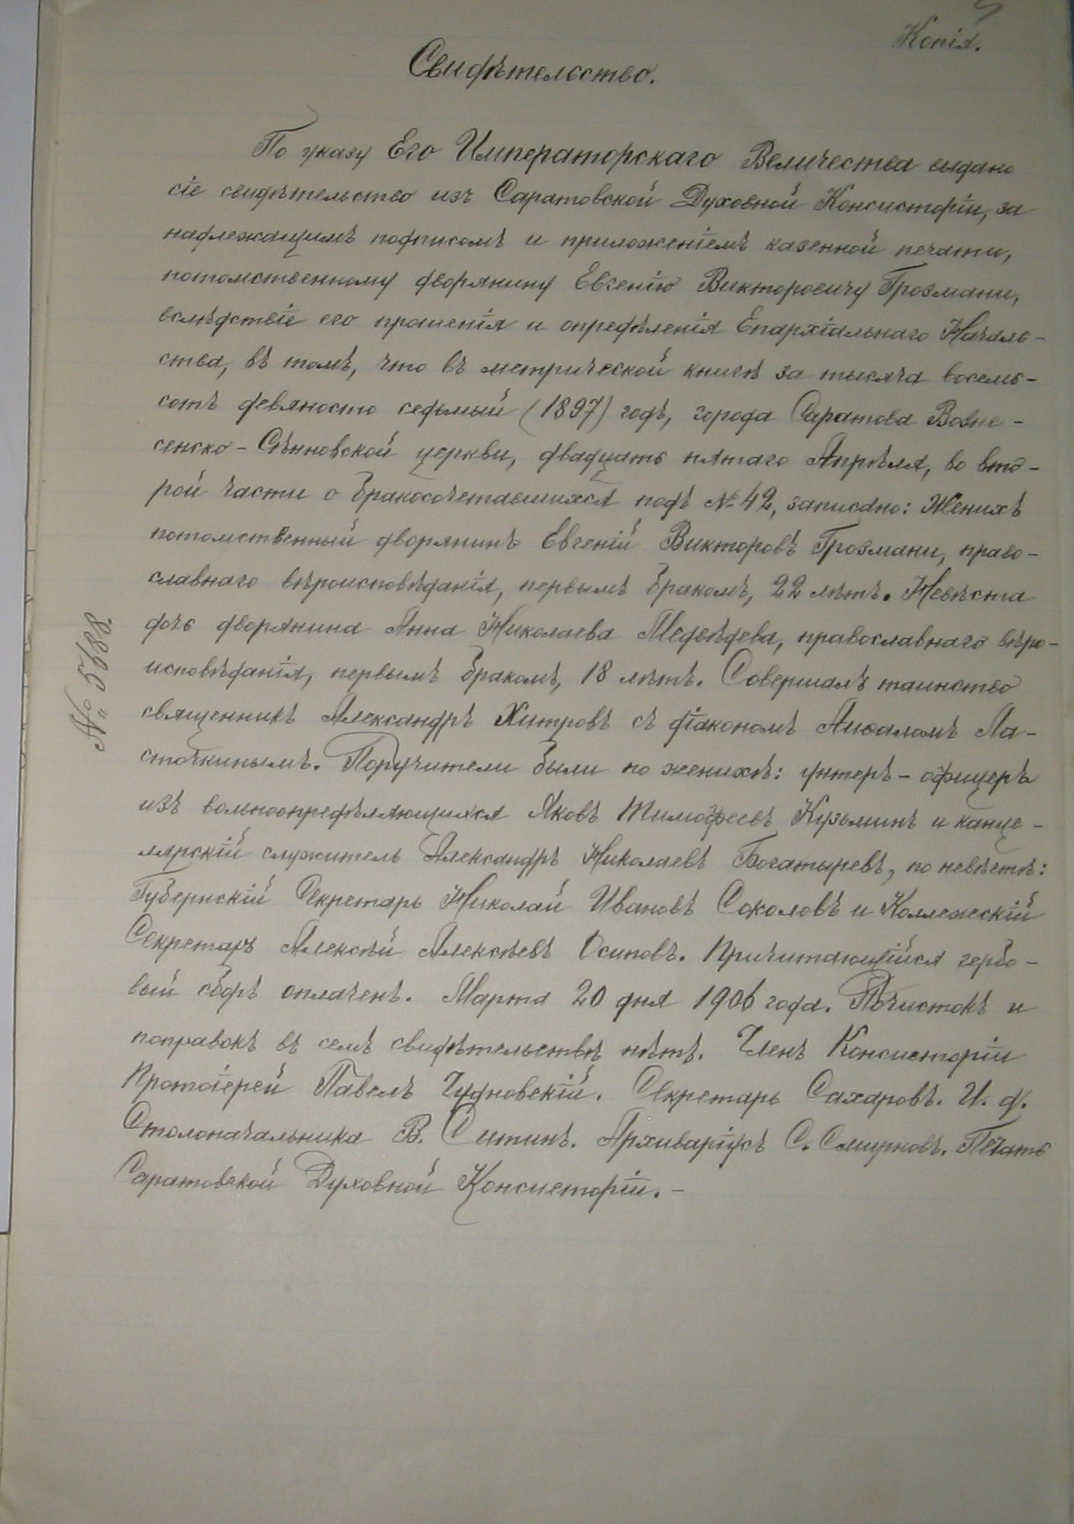 Копія.
Свидѣтельство.
По указу Его Императорскаго Величества выдано
сіе свидѣтельство изъ Саратовской Духовной Консисторіи, за
надлежащимъ подписомъ и приложеніемъ казенной печати,
потомственному дворянину Евгенію Викторовичу Грозмани,
вслѣдствіе его прошенія и опредѣленія Епархіальнаго Началь-
ства, въ томъ, что въ метрической книгѣ за тысяча восемь-
сотъ девяносто седьмый (1897) годъ, города Саратова Возне-
сенско-Сѣнновской церкви, двадцать пятаго Апрѣля, во вто-
рой части о бракосочетавшихся подъ № 42, записано: Женихъ
потомственный дворянинъ Евгеній Викторовъ Грозмани, право-
славнаго вѣроисповѣданія, первымъ бракомъ, 22 лѣтъ. Невѣста
дочь дворянина Анна Николаева Медвѣдева, православнаго вѣро-
исповѣданія, первымъ бракомъ, 18 лѣтъ. Совершалъ таинство
священникъ Александръ Хитровъ съ діакономъ Ла-
сточкинымъ. Поручители были по женихѣ: унтеръ-офицеръ
изъ вольноопредѣляющихся Яковъ Тимофеевъ Кузьминъ и канце-
лярскій служитель Александръ Николаевъ Богатыревъ, по невѣстѣ:
Губернскій Секретарь Николай Ивановъ Соколовъ и Коллежскій
Секретарь Алексѣй Алексѣевъ Осиповъ. Причитающійся гербо-
вый сборъ оплаченъ. Марта 20 дня 1906 года. Почистокъ и
поправокъ въ семъ свидѣтельствѣ нѣтъ. Членъ Консисторіи
Протоіерей Павелъ Чудновскій. Секретарь Сахаровъ. И. д.
Столоначальника В. Ситинъ. Архиваріусъ С. Смирновъ. Печать
Саратовской Духовной Консисторіи.-
№ 5688